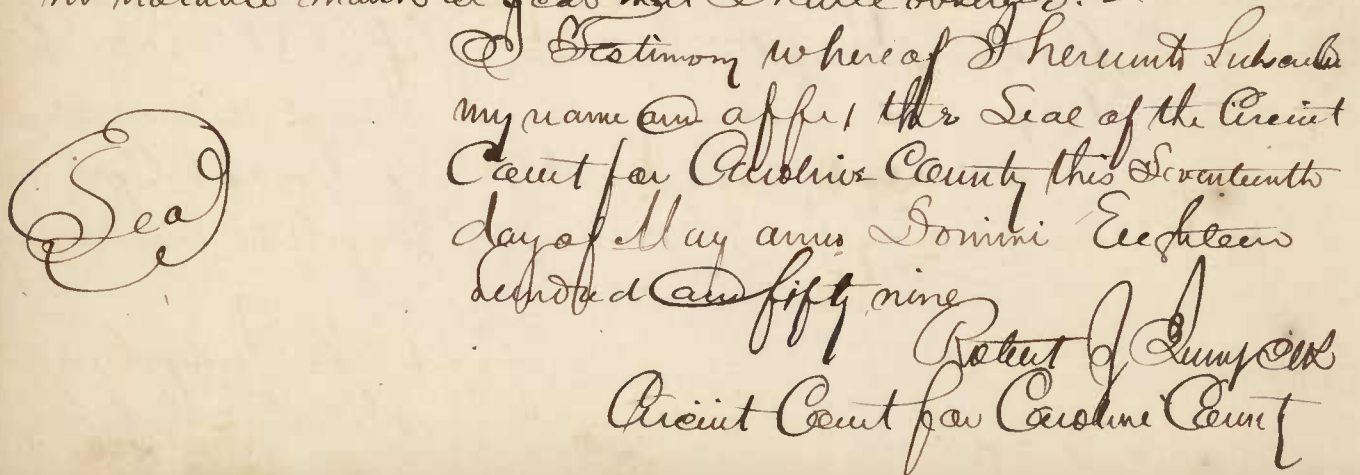 In Testimony whereof I hereunto Subscribe
my name and affix the Seal of the Circuit
Seal
Court for Caroline County this Seventeenth
day of May anno Domini Eighteen
hundred and fifty nine
Robert J Clk
Circuit Court for Caroline County